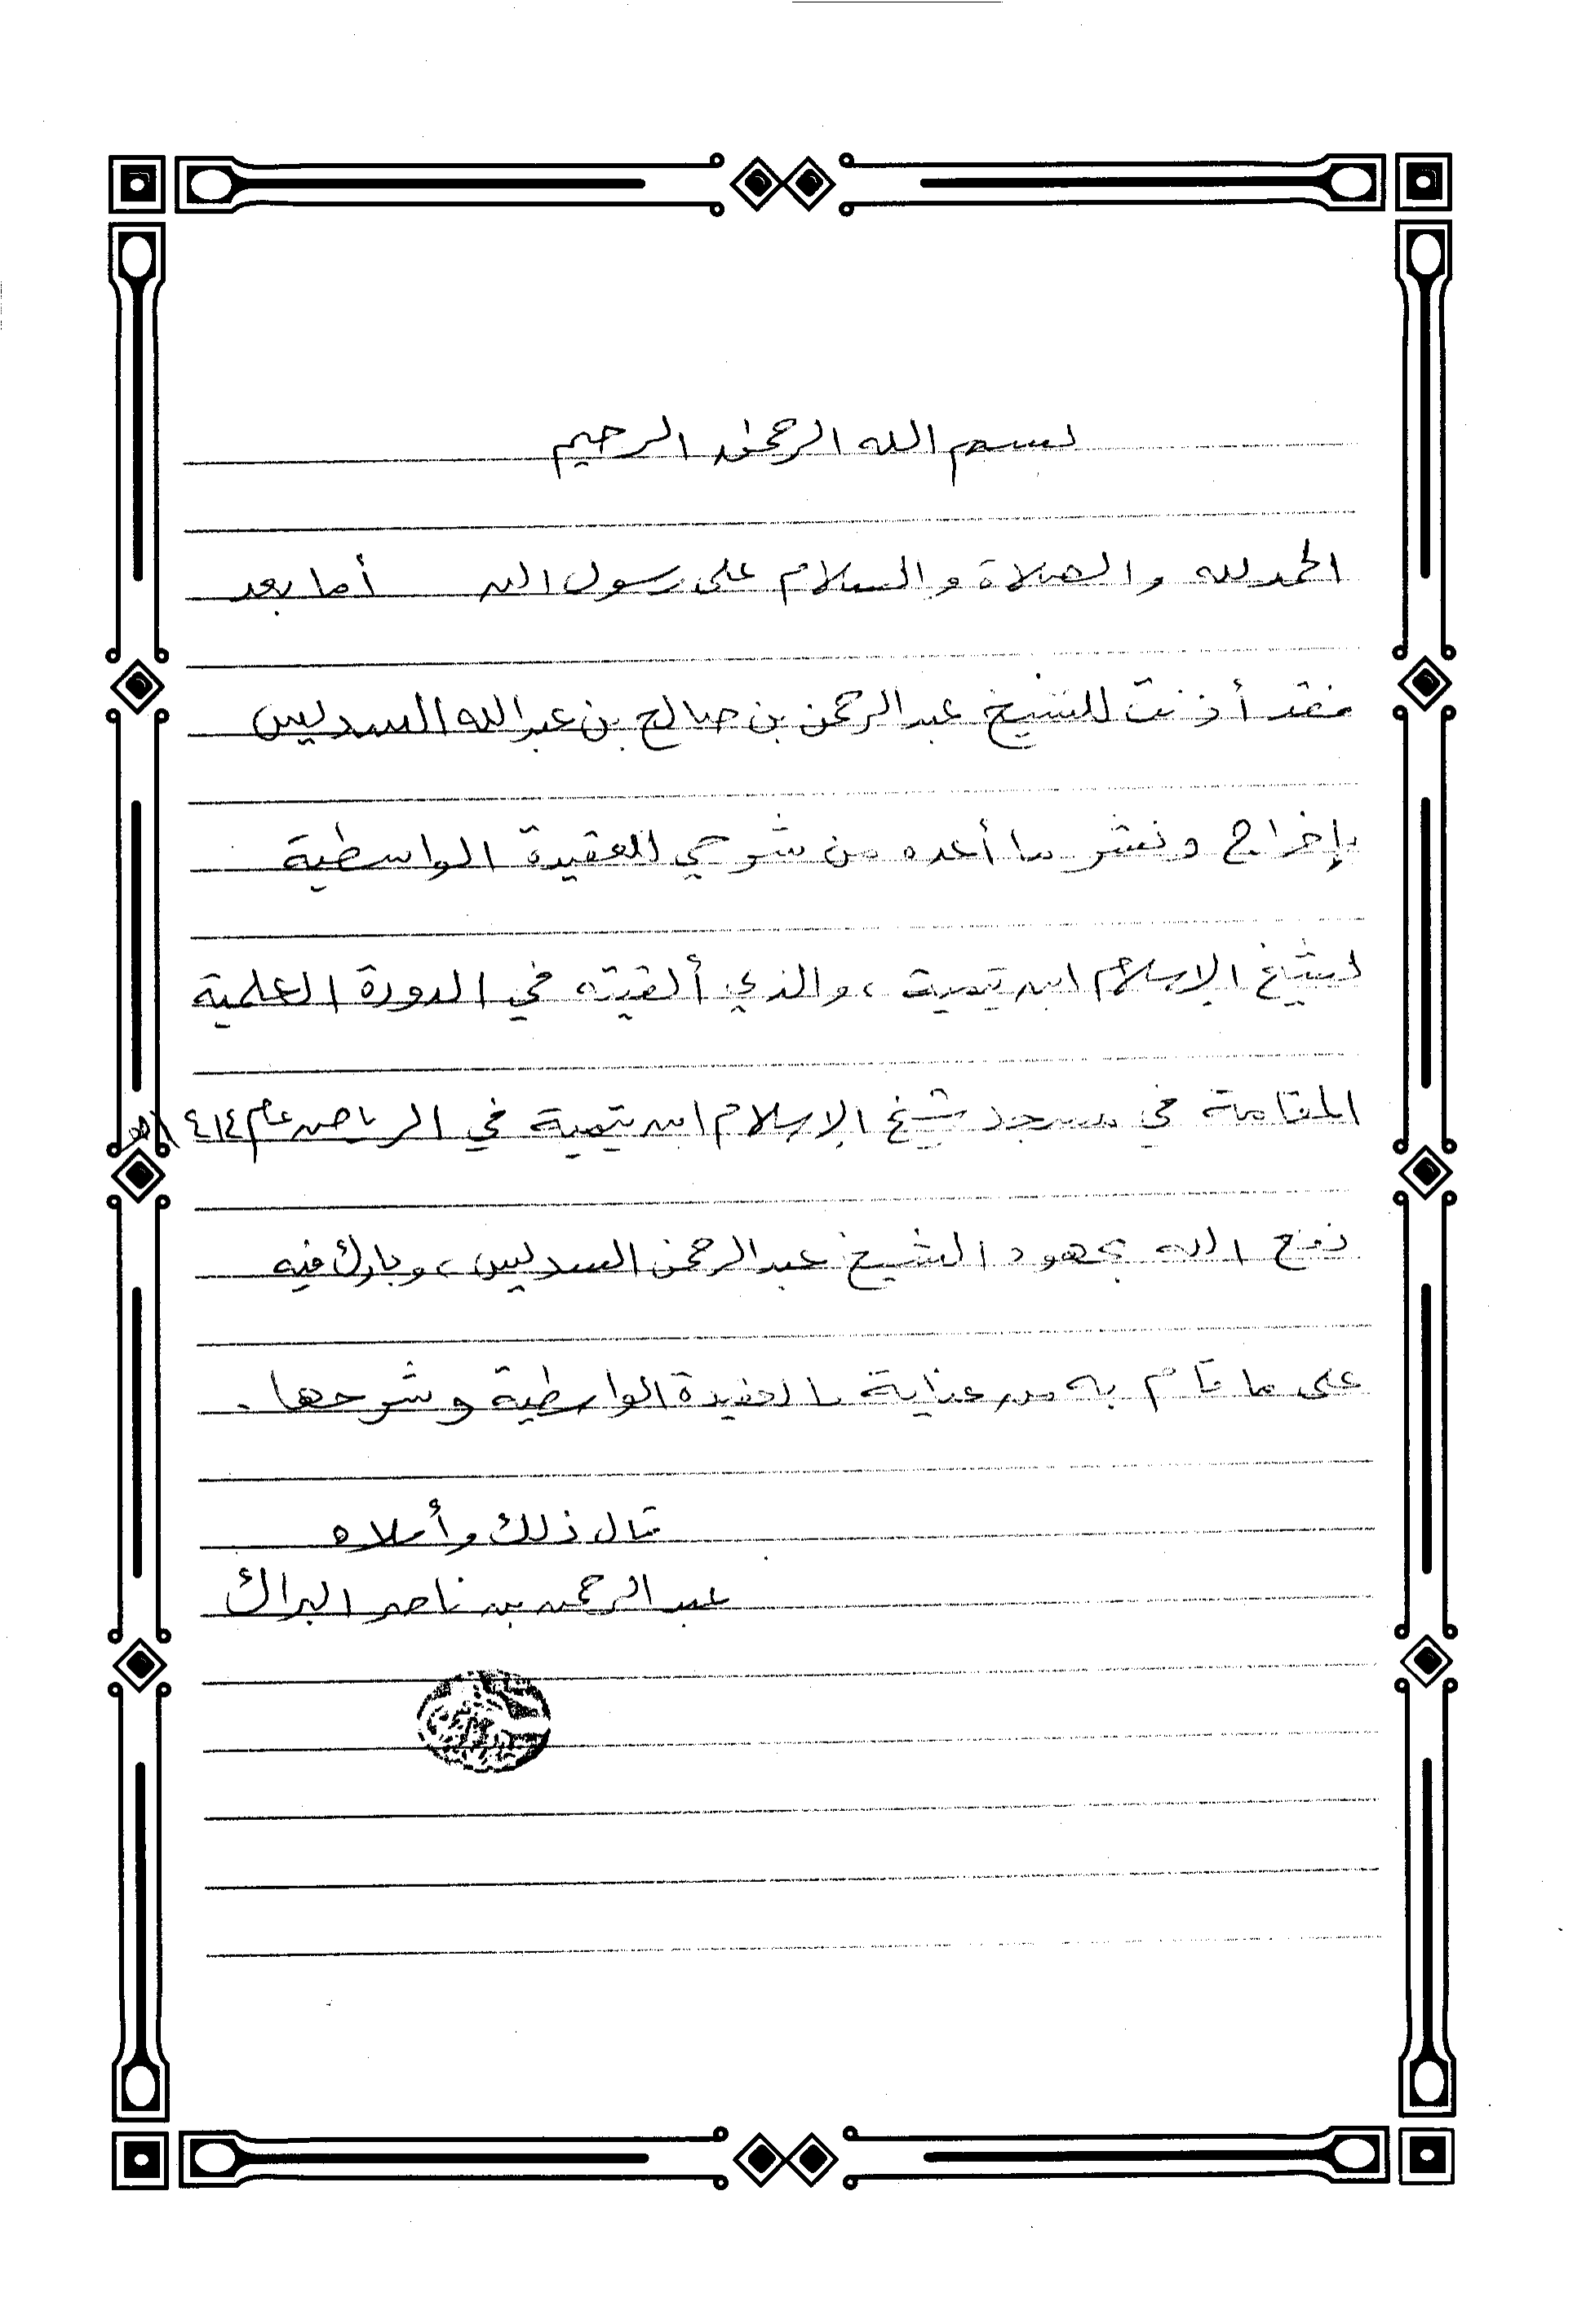 بسم الله الرحمن الرحيم
الحمد لله والصلاة والسلام على رسول الله أما بعد
فقد أذنت للشيخ عبدالرحمن بن صالح بن عبدالله السديس
بإخراج ونشر ما أعده من شرحي للعقيدة الواسطية
لشيخ الإسلام ابن تيمية، والذي ألقيته في الدورة العلمية
المقامة في مسجد شيخ الإسلام ابن تيمية في الرياض عام ١٤١٤هـ
نفع الله بجهود الشيخ عبدالرحمن السديس، وبارك فيه
على ما قام به من عناية بالعقيدة الواسطية وشرحها.
قال ذلك وأملاه
عبدالرحمن بن ناصر البراك